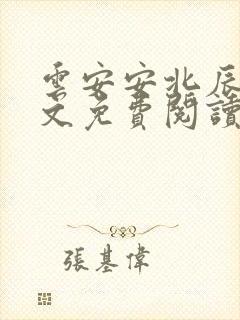 雲安安北辰
文免費閱讀
張基偉